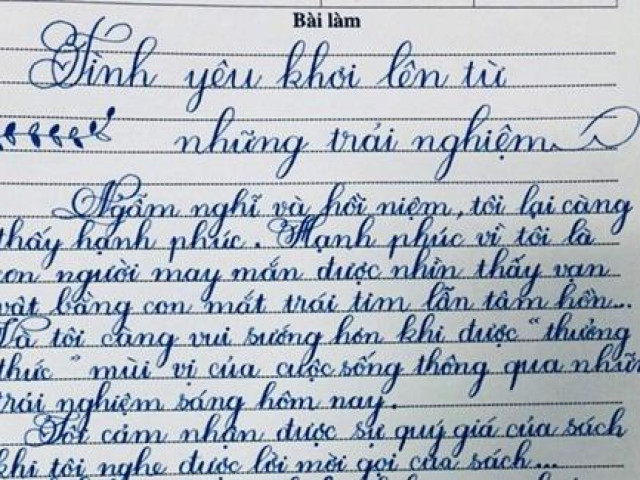 Bài làm
Tình yêu khơi lên từ
những trải nghiệm
Ngẫm nghĩ và hồi niệm, tôi lại càng
thấy hạnh phúc. Hạnh phúc vì tôi là
con người may mắn được nhìn thấy vạn
vật bằng con mắt trái tim lẫn tâm hồn...
Và tôi càng vui sướng hơn khi được "thưởng
thức" mùi vị của cuộc sống thông qua những
trải nghiệm sáng hôm nay.
Tôi cảm nhận được sự quý giá của sách
khi tôi nghe được lời mời gọi của sách...